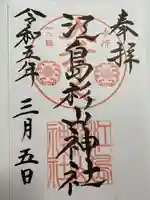 奉拝
江島杉山神社
令和五年
三月五日